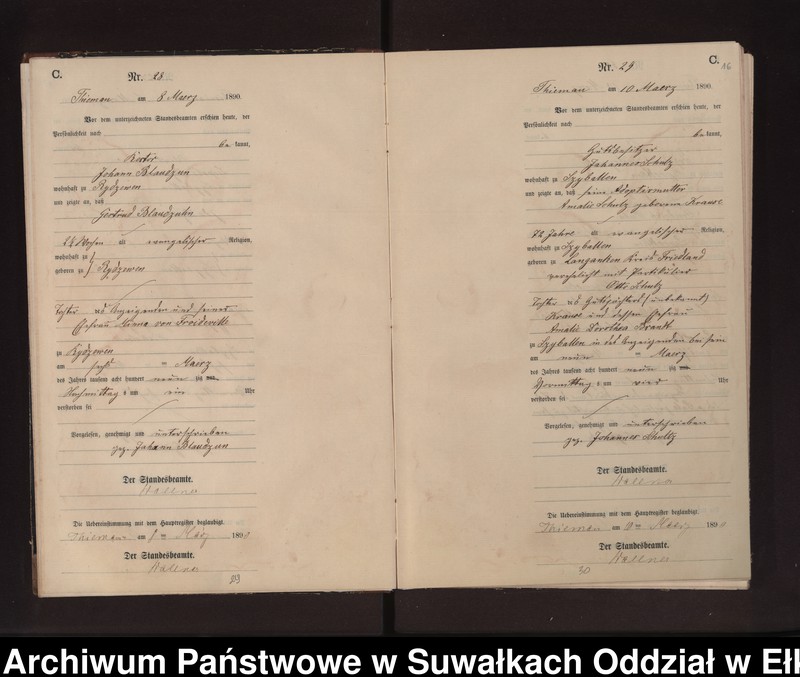 C.
Nr. 28
Thiemau am 8 Maerz 1890.
Vor dem unterzeichneten Standesbeamten erschien heute, der
Persönlichkeit nach
be kannt,
Johann Blandzun
wohnhaft zu Rydzewen
und zeigte an, daß
Gertrud Blandzuhn
24 Wochen alt evangelischer Religion,
wohnhaft zu
geboren zu Rydzewen
Tochter des Anzeigenden und seiner
Ehefrau Minna von
zu Rydzewen
am sechs ten Maerz
des Jahres tausend acht hundert neun zig
Nachmittag s um ein Uhr
verstorben sei
Vorgelesen, genehmigt und unterschrieben
gez. Johann Blandzun
Der Standesbeamte.
Die Uebereinstimmung mit dem Hauptregister beglaubigt.
Thiemau am 8 ten März 1890
Der Standesbeamte.
C.
86
Nr. 29
Thiemau am 10 Maerz 1890
Vor dem unterzeichneten Standesbeamten erschien heute, der
Persönlichkeit nach
be kannt,
Gutsbesitzer
Johannes Schulz
wohnhaft zu Szyballen
und zeigte an, daß seine Adoptivmutter
Amalie Schulz geborene Krause
72 Jahre alt evangelischer Religion,
wohnhaft zu Szyballen
geboren zu Kreis Friedland
verehelicht mit Partikulier
Otto Schulz
Tochter des Gutspächters (unbekannt)
Krause und dessen Ehefrau
Amalie Dorothea Brandt
zu Szyballen in des Anzeigenden bei sein
am neun ten Maerz
des Jahres tausend acht hundert neun zig
Vormittag s um vier Uhr
verstorben sei
Vorgelesen, genehmigt und unterschrieben
gez. Johannes Schultz
Der Standesbeamte.
Die Uebereinstimmung mit dem Hauptregister beglaubigt.
Thiemau am 10 ten März 1890
Der Standesbeamte.
30
Archiwum Państwowe w Suwałkach Oddział w Ełk